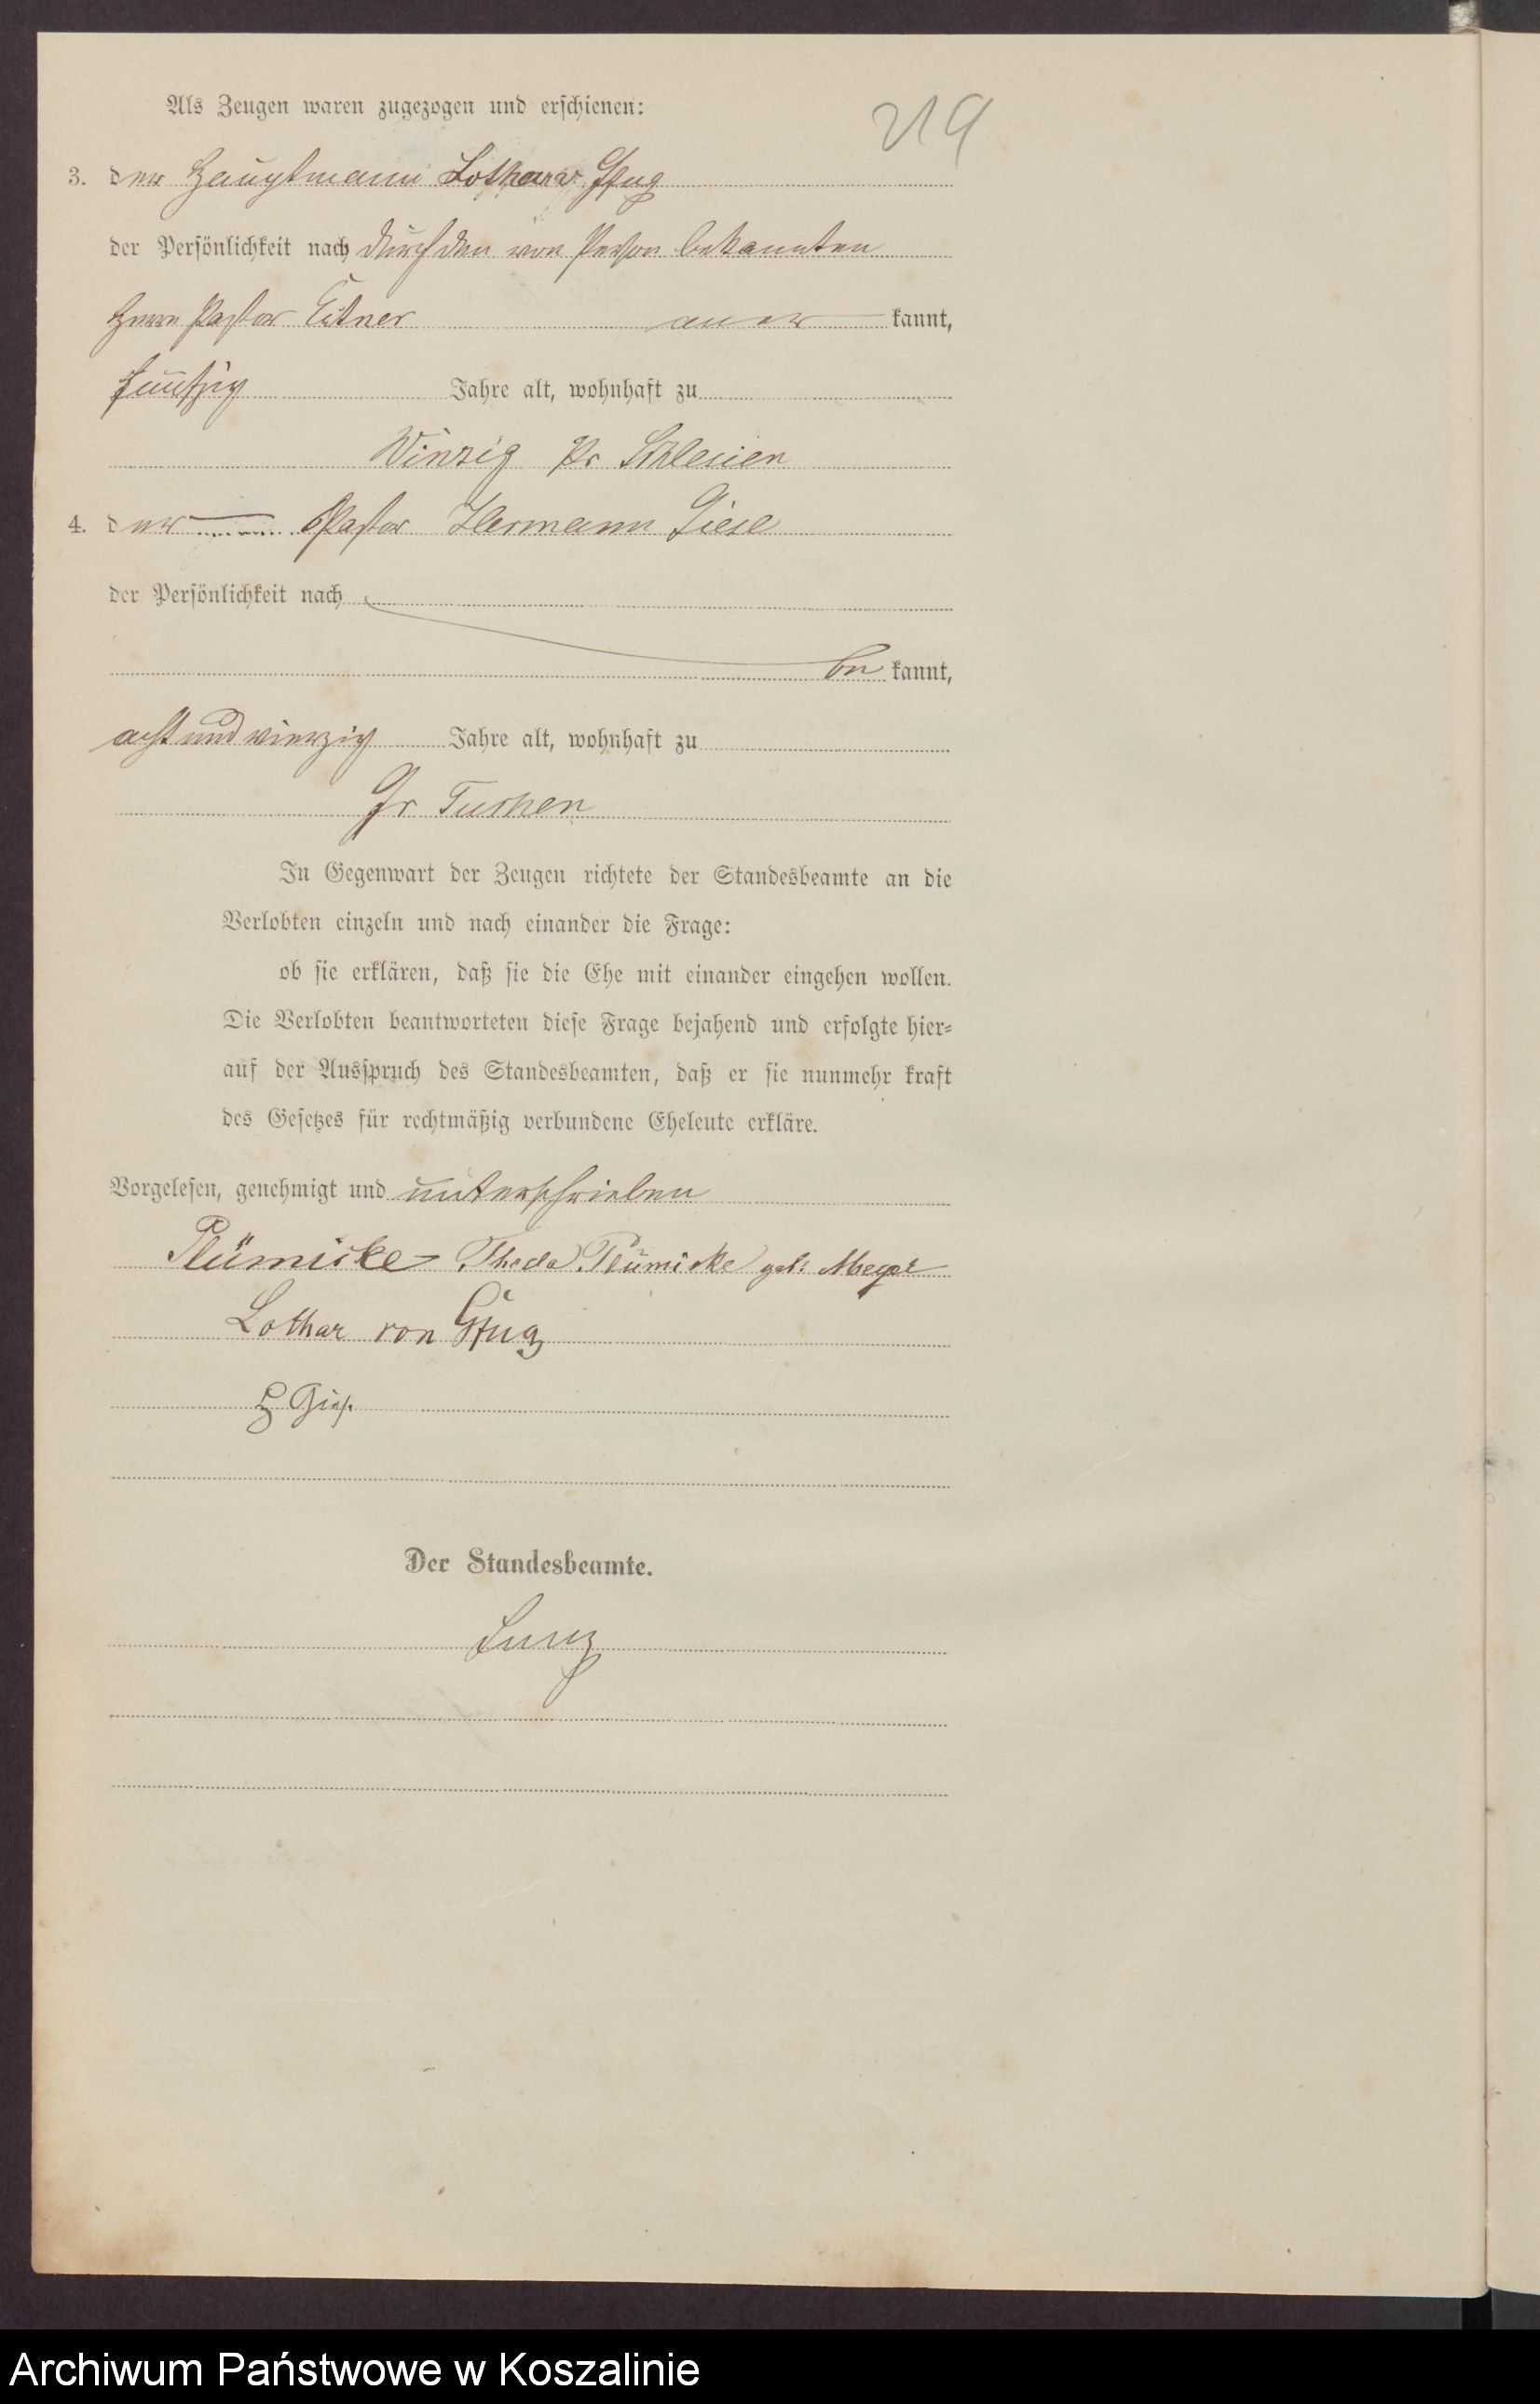 Als Zeugen waren zugezogen und erschienen:
219
3. der Hauptmann Lothar v. Gfug
der Persönlichkeit nach durch den von Person bekannten
Herrn Pastor Eitner aner kannt,
fünfzig Jahre alt, wohnhaft zu
Winzig Pr Schlesien
4. der Pastor Hermann Giese
der Persönlichkeit nach
be kannt,
acht und vierzig Jahre alt, wohnhaft zu
Gr Tuchen
In Gegenwart der Zeugen richtete der Standesbeamte an die
Verlobten einzeln und nach einander die Frage:
ob sie erklären, daß sie die Ehe mit einander eingehen wollen.
Die Verlobten beantworteten diese Frage bejahend und erfolgte hier=
auf der Ausspruch des Standesbeamten, daß er sie nunmehr kraft
des Gesetzes für rechtmäßig verbundene Eheleute erkläre.
Vorgelesen, genehmigt und unterschrieben
Plümicke Theda Plümicke geb: Meyer
Lothar von Gfug
H Giese
Der Standesbeamte.
Archiwum Państwowe w Koszalinie